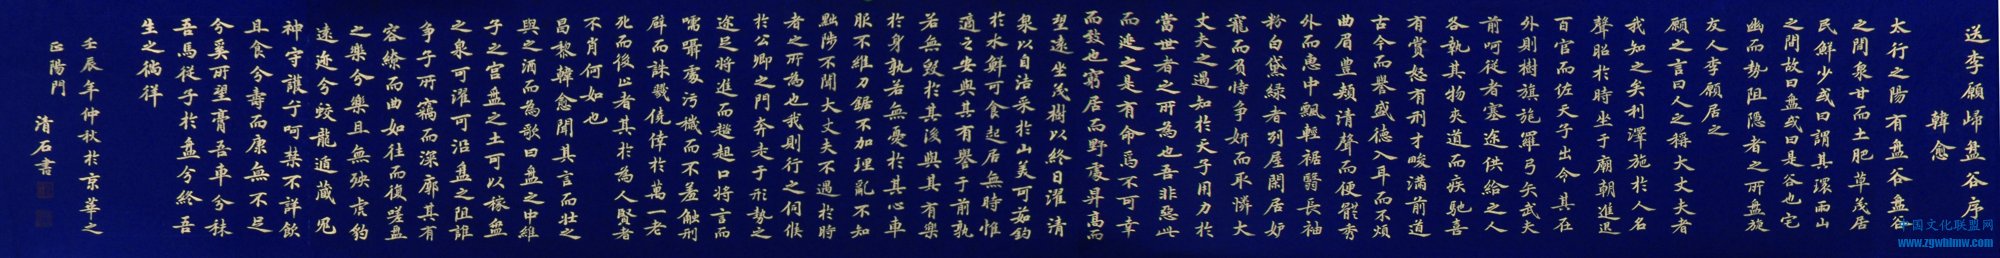 送李愿歸盘谷序
韓愈
太行之陽有盘谷盘谷
之間泉甘而土肥草茂居
民鮮少或曰謂其環兩山
之間故曰盘或曰是谷也宅
幽而势阻隐者之所盘旋
友人李愿居之
愿之言曰人之稱大丈夫者
我知之矣利澤施於人名
聲昭於時坐于廟朝進退
百官而佐天子出令其在
外則樹旗旄羅弓矢武夫
前呵從者塞途供給之人
各執其物夹道而疾馳喜
有賞怒有刑才畯满前道
古今而譽盛德入耳而不煩
曲眉豊頰清聲而便體秀
外而惠中飄輕裾翳長袖
粉白黛綠者列屋閑居妒
寵而負恃争妍而取憐大
丈夫之遇知於天子用力於
當世者之所為也吾非惡此
而逃之是有命焉不可幸
而致也窮居而野處昇高而
望遠坐茂樹以終日濯清
泉以自洁采於山美可茹釣
於水鮮可食起居無時惟
適之安與其有譽于前孰
若無毀於其後與其有樂
於身孰若無憂於其心車
服不維刀鋸不加理亂不知
黜陟不聞大丈夫不遇於時
者之所為也我則行之伺候
於公卿之門奔走于形勢之
途足将進而趑趄口将言而
嚅囁處污穢而不羞触刑
辟而誅戮僥倖於萬一老
死而後止者其於為人賢者
不肖何如也
昌黎韓愈聞其言而壮之
與之酒而為歌曰盘之中維
子之宫盘之土可以稼盘
之泉可濯可沿盘之阻誰
争子所窈而深廓其有
容繚而曲如往而復嗟盘
之樂兮樂且無殃虎豹
遠迹兮蛟龍遁藏鬼
神守護兮呵禁不詳飲
且食兮壽而康無不足
兮奚所望膏吾車兮秣
吾馬從子於盘兮終吾
生之徜徉
壬辰年仲秋於京華之
正陽門
清石書
中国文化联盟网
www.zgwhlmw.com